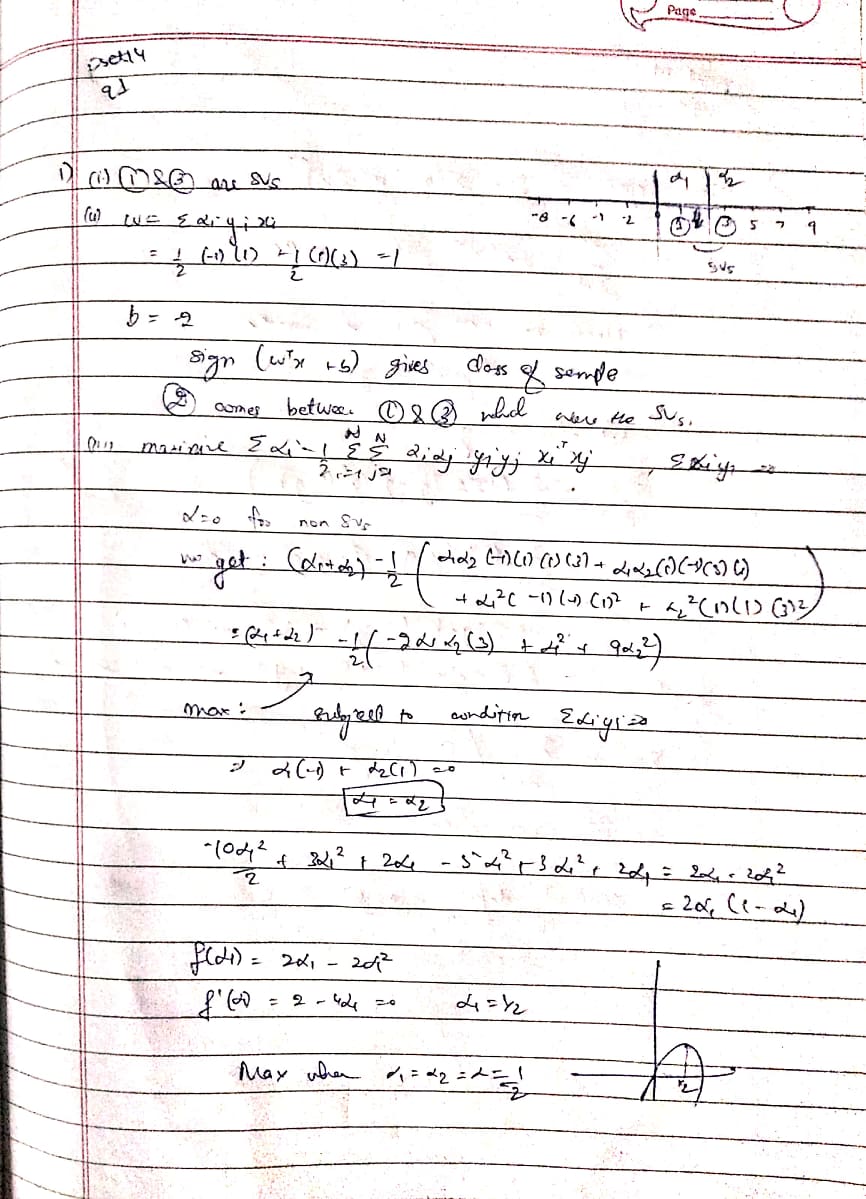 Page
pset14
q1
1) (i) ① & ③ are SVs
α₁ α₂
(ii) w = Σ αᵢ yᵢ xᵢ
-8 -6 -1 -2 ① ③ 5 7 9
SVs
= 1/2 (-1)(1) + 1/2 (1)(3) = 1
b = -2
sign (wᵀx + b) gives class of sample
② comes between ① & ③ which were the SVs.
(iii) maximize Σ αᵢ - 1/2 Σᵢ₌₁ᴺ Σⱼ₌₁ᴺ αᵢαⱼ yᵢyⱼ xᵢᵀxⱼ , Σαᵢyᵢ =0
α=0 for non SVs
we get : (α₁+α₂) - 1/2 ( α₁α₂ (-1)(1)(1)(3) + α₁α₂(1)(-1)(3)(1)
+ α₁²(-1)(-1)(1)² + α₂²(1)(1)(3)² )
= (α₁+α₂) - 1/2 (-2α₁α₂(3) + α₁² + 9α₂²)
max : subject to condition Σαᵢyᵢ=0
⇒ α₁(-1) + α₂(1) =0
α₁ = α₂
-10α₁²/2 + 3α₁² + 2α₁ - 5α₁² + 3α₁² + 2α₁ = 2α₁ - 2α₁²
= 2α₁ (1-α₁)
f(α₁) = 2α₁ - 2α₁²
f'(α) = 2 - 4α₁ =0 α₁ = 1/2
Max when α₁ = α₂ = α = 1/2
1/2